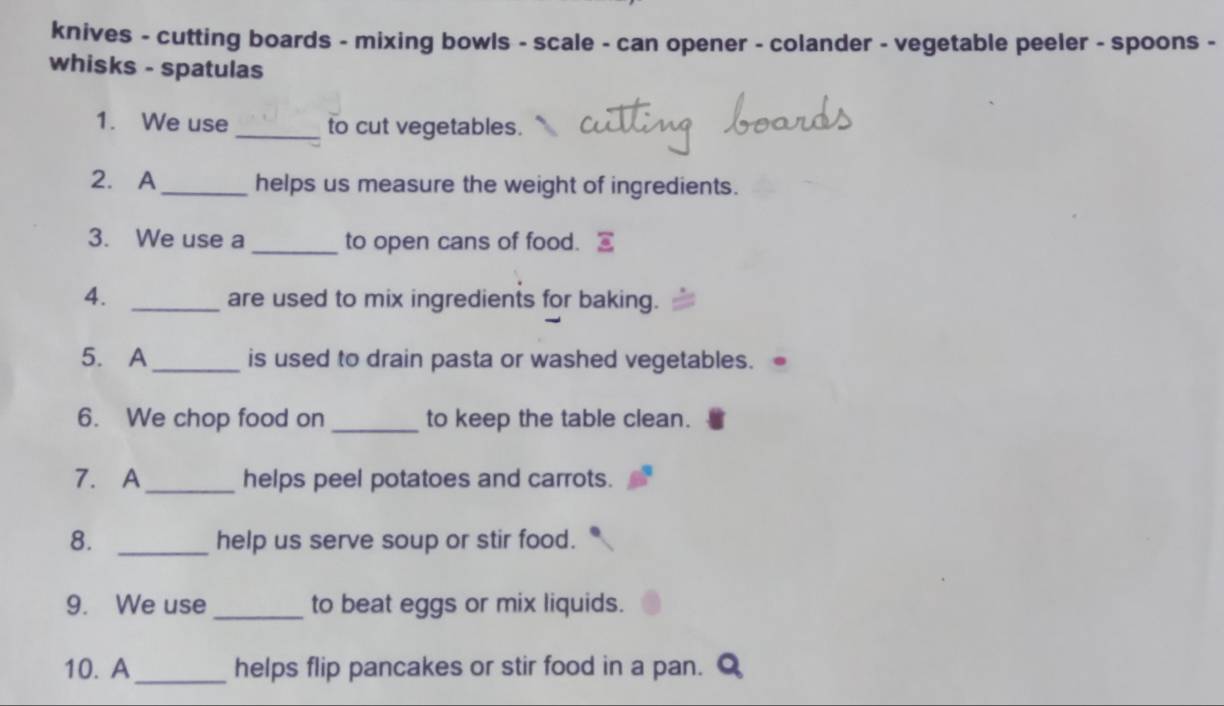 knives - cutting boards - mixing bowls - scale - can opener - colander - vegetable peeler - spoons -
whisks - spatulas
1. We use ______ to cut vegetables. cutting boards
2. A ______ helps us measure the weight of ingredients.
3. We use a ______ to open cans of food.
4. ______ are used to mix ingredients for baking.
5. A ______ is used to drain pasta or washed vegetables.
6. We chop food on ______ to keep the table clean.
7. A ______ helps peel potatoes and carrots.
8. ______ help us serve soup or stir food.
9. We use ______ to beat eggs or mix liquids.
10. A ______ helps flip pancakes or stir food in a pan.